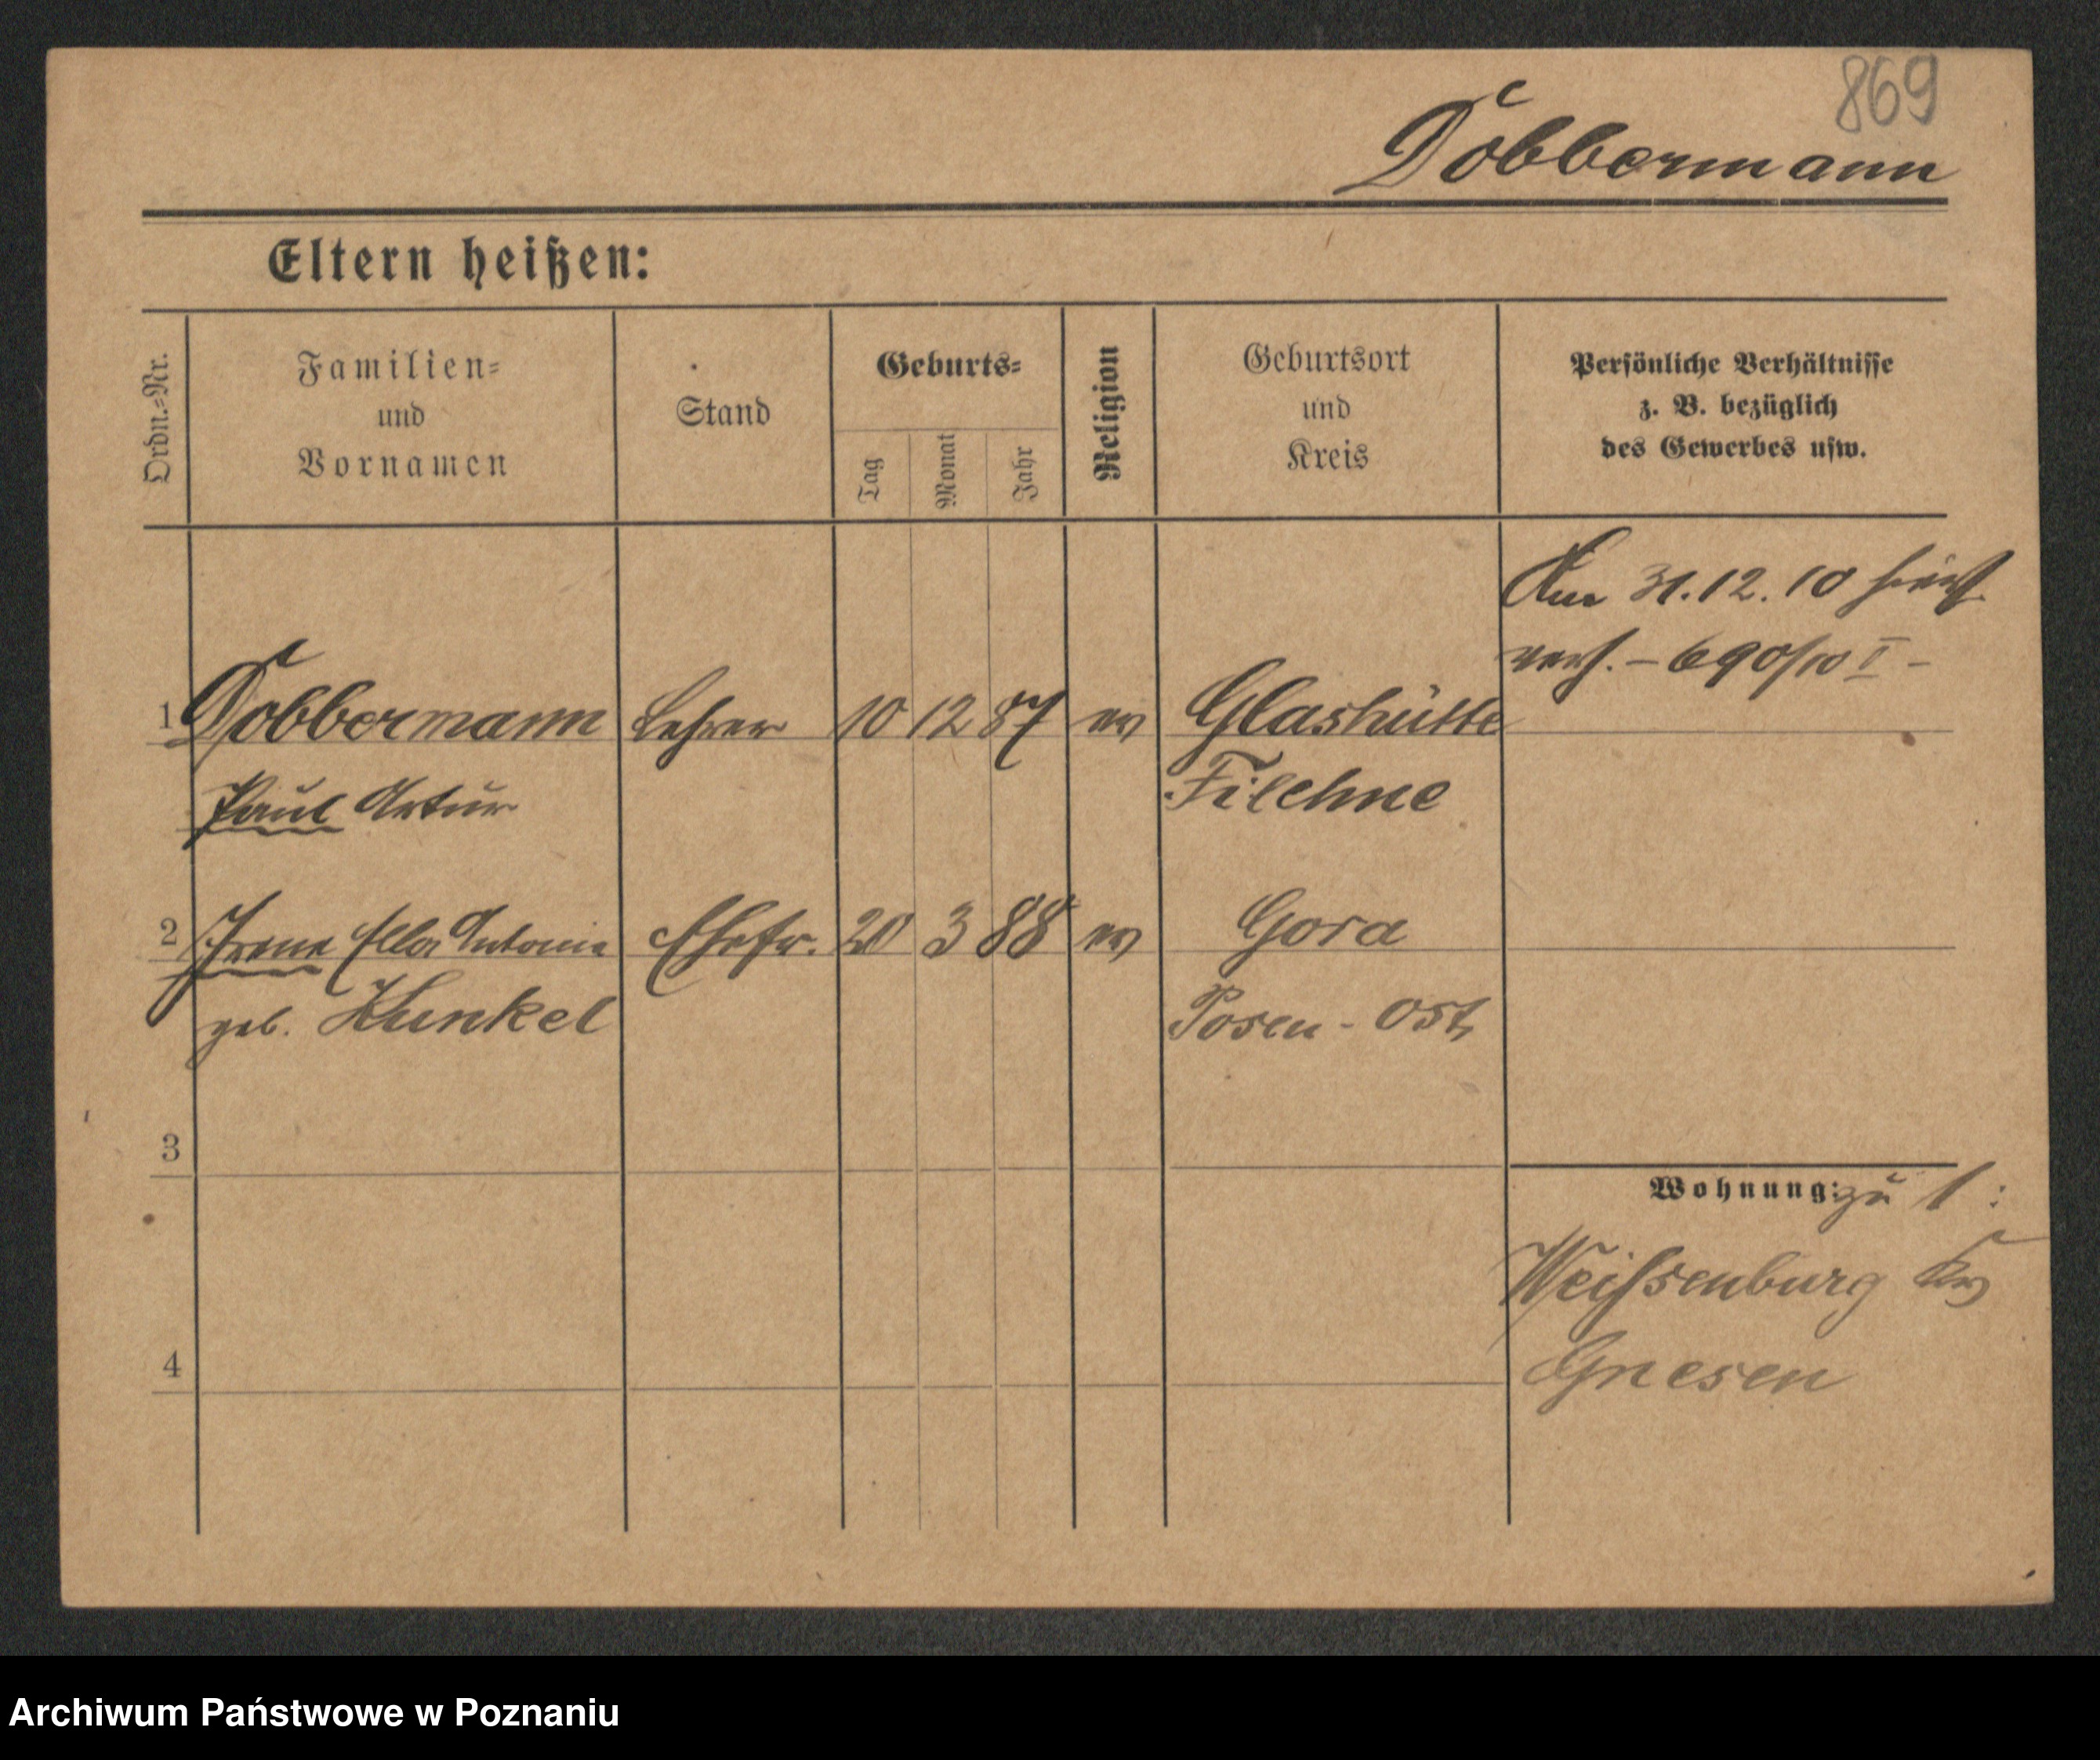 869
Dobbermann
Eltern heißen:
Ordn.=Nr.
Familien=
und
Vornamen
Stand
Geburts=
Tag
Monat
Jahr
Religion
Geburtsort
und
Kreis
Persönliche Verhältnisse
z. B. bezüglich
des Gewerbes usw.
Am 31.12.10
- 690/10 I -
1 Dobbermann Lehrer 10 12 87 ev Glashütte
Paul Artur Filehne
2 Irene Ella Antonie Ehefr. 20 3 88 ev Gora
geb. Kunkel Posen - Ost
3
Wohnung: zu 1:
Weissenburg Kr
4 Gnesen
Archiwum Państwowe w Poznaniu